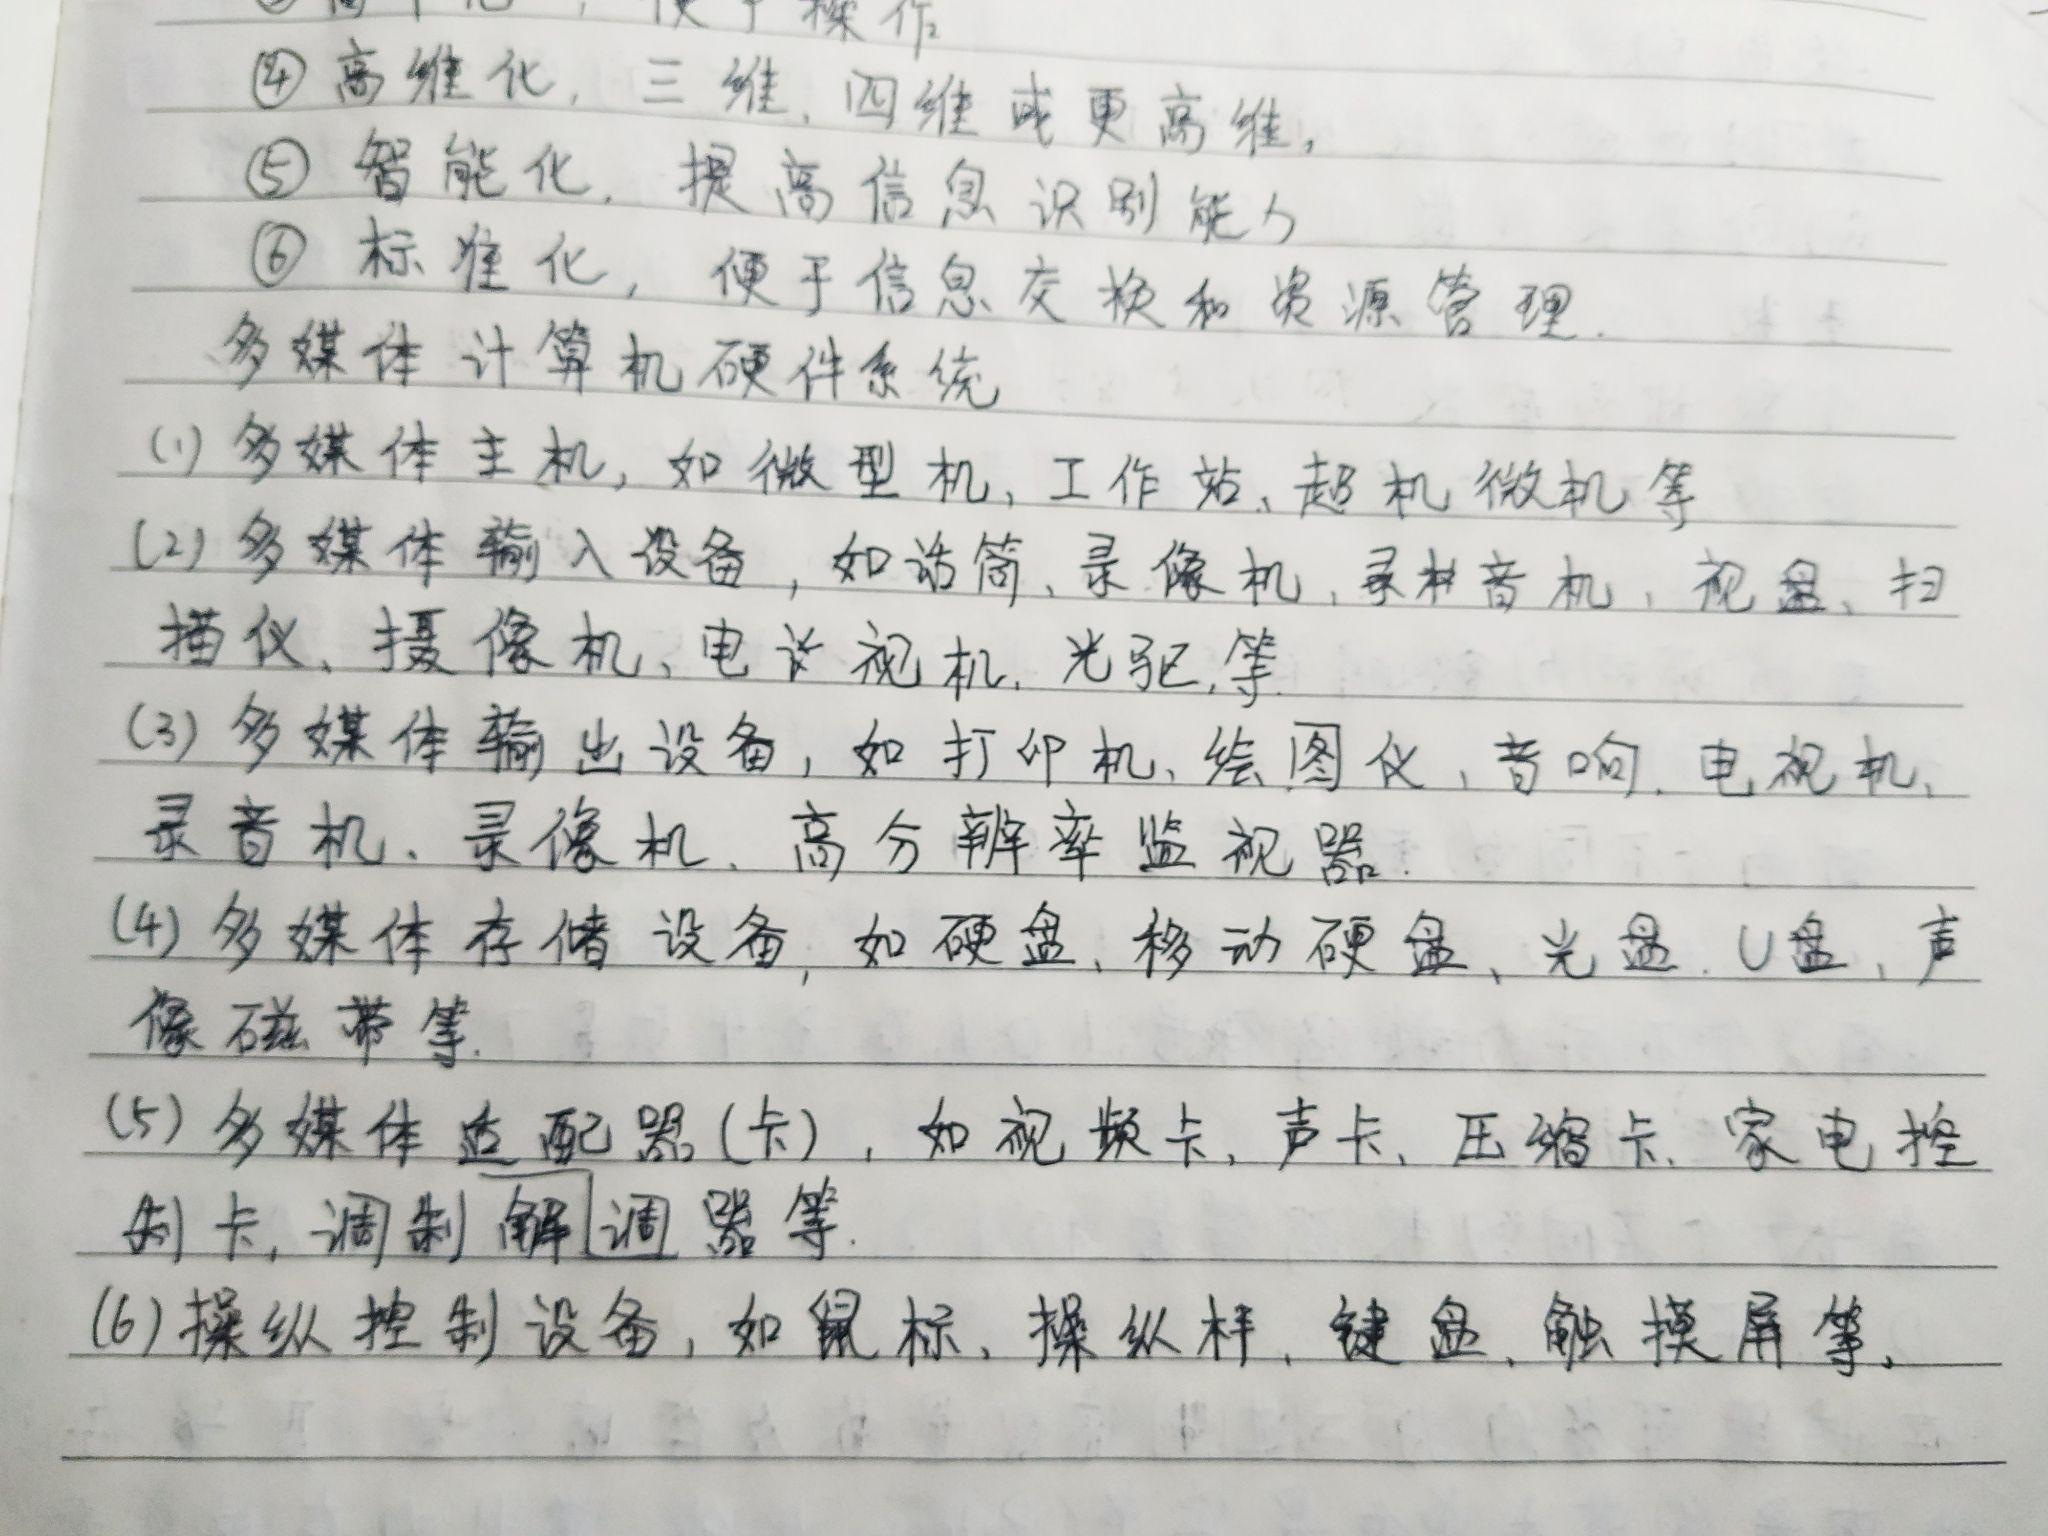 便于操作
④高维化，三维、四维或更高维，
⑤智能化，提高信息识别能力
⑥标准化，便于信息交换和资源管理.
多媒体计算机硬件系统
(1)多媒体主机，如微型机、工作站、超机微机等
(2)多媒体输入设备，如话筒、录像机、录音机、视盘、扫
描仪、摄像机、电视机、光驱、等.
(3)多媒体输出设备，如打印机、绘图仪、音响、电视机、
录音机、录像机、高分辨率监视器.
(4)多媒体存储设备，如硬盘、移动硬盘、光盘、U盘、声
像磁带等.
(5)多媒体适配器(卡)，如视频卡、声卡、压缩卡、家电控
制卡，调制解调器等.
(6)操纵控制设备，如鼠标、操纵杆、键盘、触摸屏等，